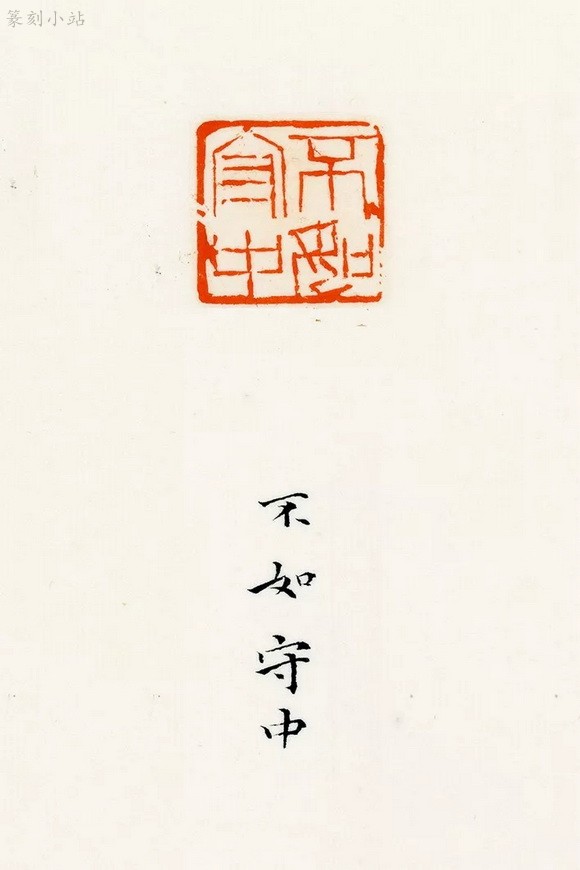 篆刻小站
不如
守中
不如守中